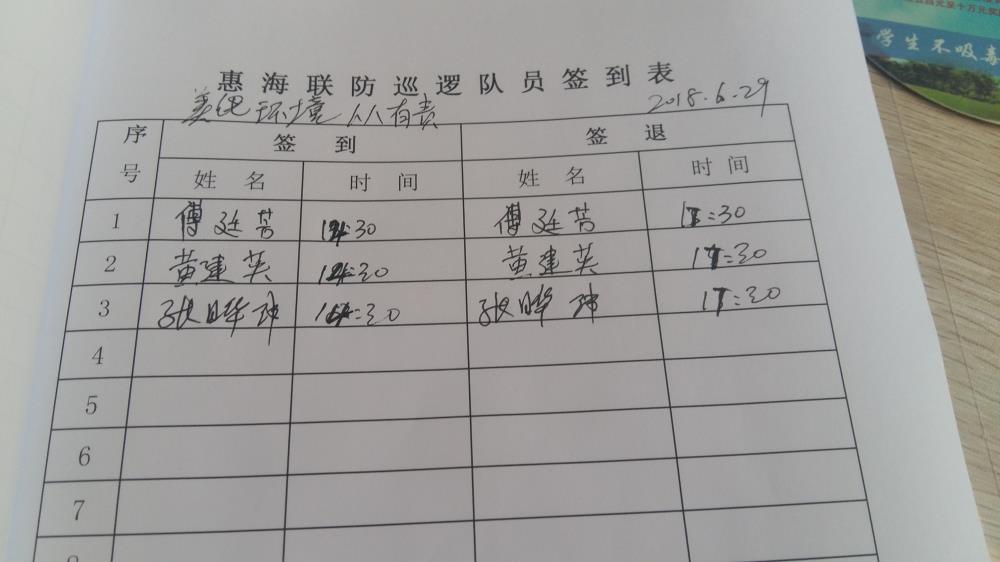 元至十万元奖
学生不吸毒
惠海联防巡逻队员签到表
美化环境 人人有责 2018.6.29
序号 签到 签退
姓名 时间 姓名 时间
1 傅廷芳 14:30 傅廷芳 17:30
2 黄建英 14:30 黄建英 17:30
3 张晔 14:30 张晔 17:30
4
5
6
7